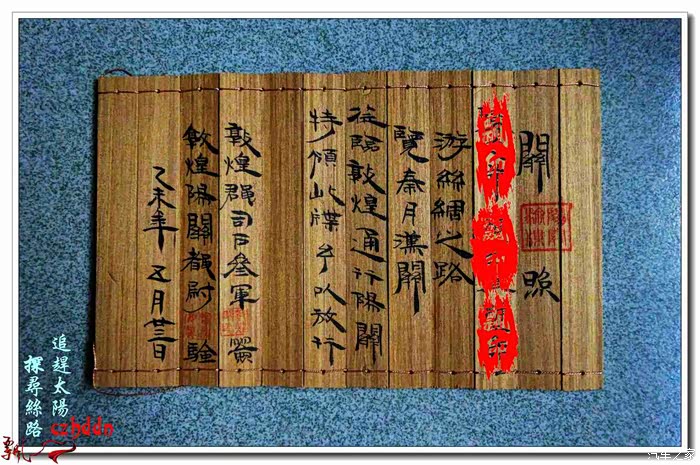 關 照
游絲綢之路
覽秦月漢關
敦煌通行陽關
特頒此牒予以放行
敦煌郡司戶參軍
敦煌陽關都尉 驗
乙未年 五月廿三日
追趕太陽
探尋絲路
czhddn
飄
汽车之家